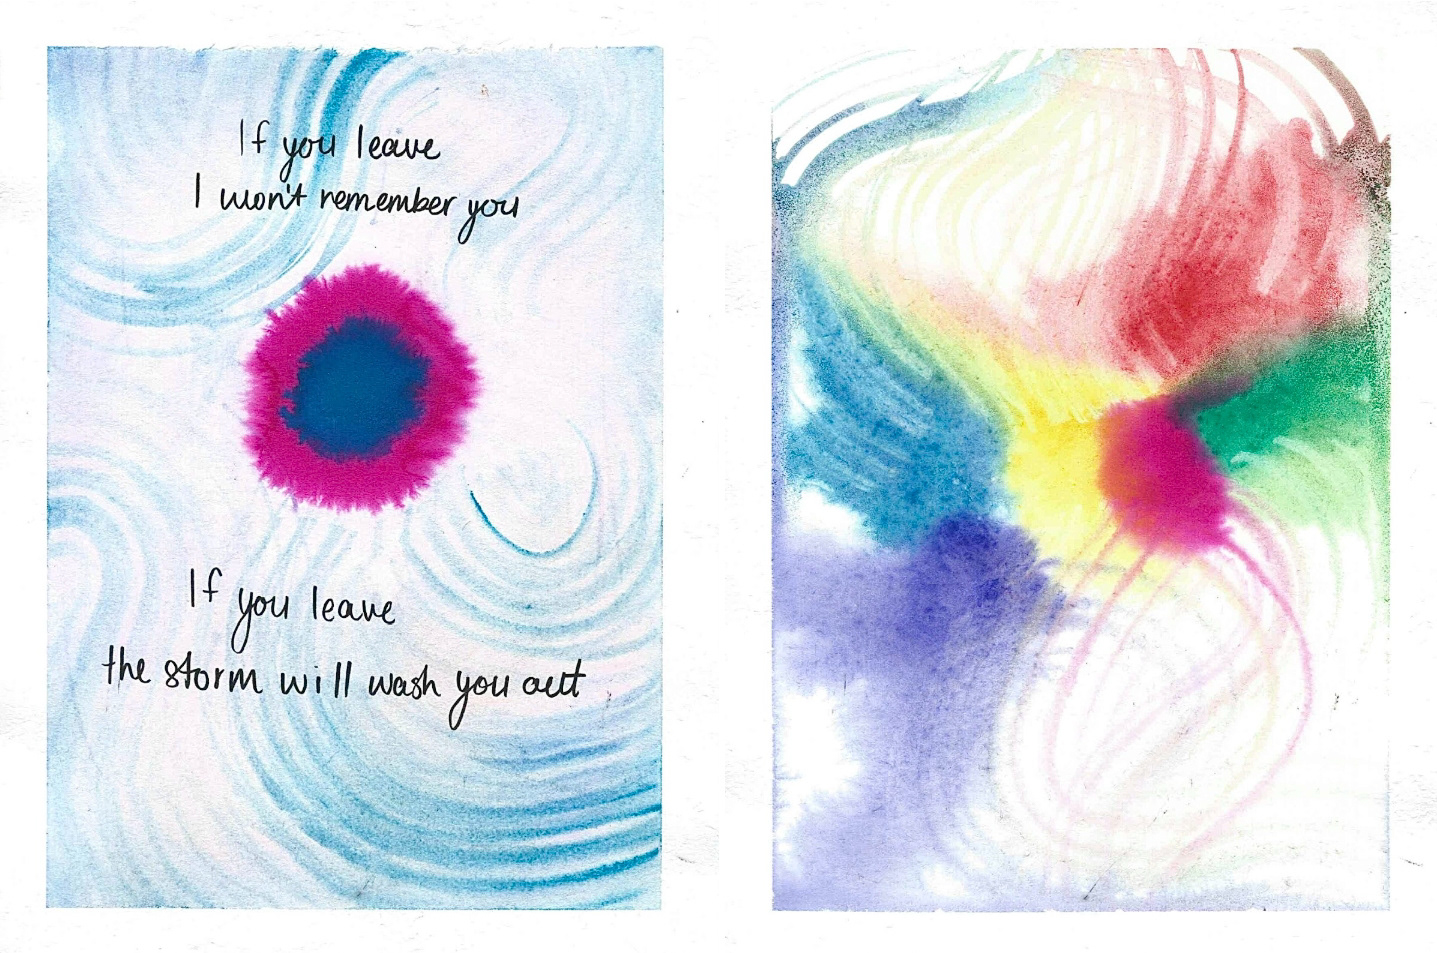 If you leave
I won't remember you
If you leave
the storm will wash you out